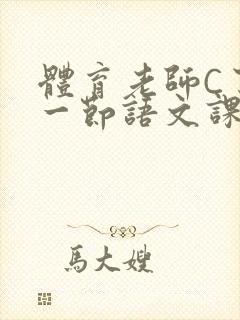 體育老師C
一節語文課
馬大嫂